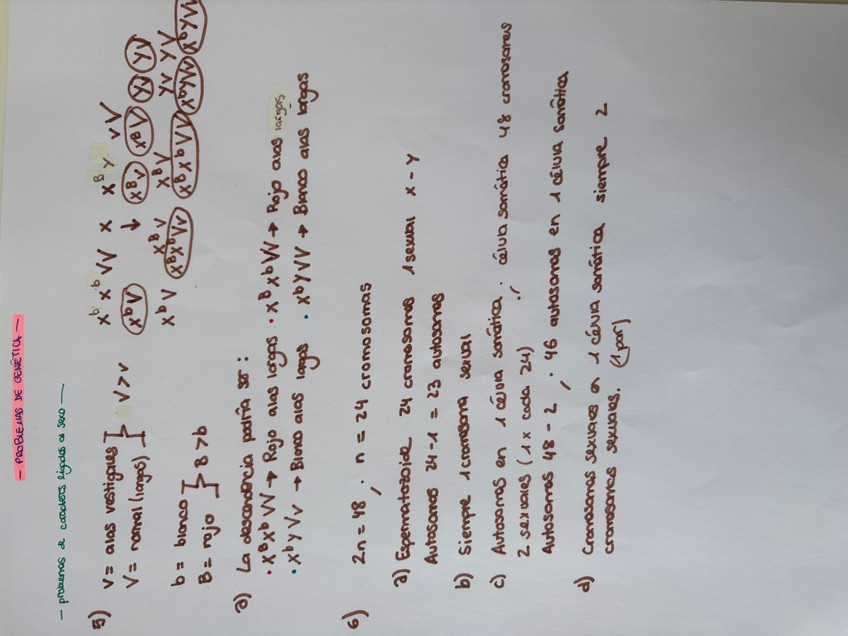 - PROBLEMAS DE GENÉTICA -
- problemas de caracteres ligados al sexo -
5) v = alas vestigiales
V = normal (largas)
V > v
b = blanco
B = rojo
B > b
X^b X^b VV x X^B Y vV
X^b V ↓ X^B v X^B V Yv YV
X^B v X^B V Yv YV
X^b V X^B X^b Vv X^B X^b VV X^b Y Vv X^b Y VV
a) La descendencia podría ser:
• X^B X^b VV → Rojo alas largas • X^B X^b VV → Rojo alas largas
• X^b Y Vv → Blanco alas largas • X^b Y VV → Blanco alas largas
6) 2n = 48, n = 24 cromosomas
a) Espermatozoide 24 cromosomas 1 sexual X - Y
Autosomas 24 - 1 = 23 autosomas
b) Siempre 1 cromosoma sexual
c) Autosomas en 1 célula somática. célula somática 48 cromosomas
2 sexuales (1 x cada 24)
Autosomas 48 - 2, 46 autosomas en 1 célula somática
d) Cromosomas sexuales en 1 célula somática siempre 2
cromosomas sexuales. (1 par)